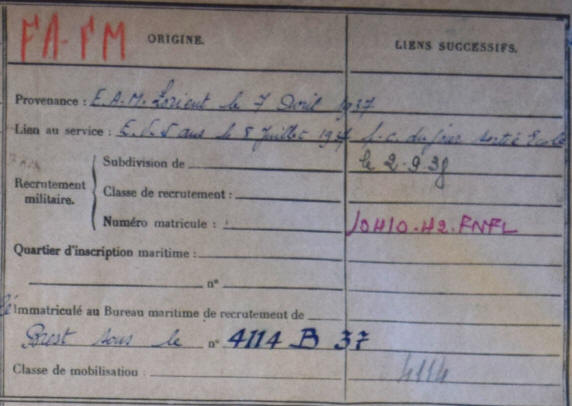 FA-FM
ORIGINE.
LIENS SUCCESSIFS.
Provenance : E.A.M. Lorient le 7 Avril 1937
Lien au service : E. d. 5 ans le 8 Juillet 1937 p.c. du jour sortie Ecole
le 2-9-38
Recrutement militaire.
Subdivision de
Classe de recrutement :
Numéro matricule : 10410.42.FNFL
Quartier d'inscription maritime :
n°
Immatriculé au Bureau maritime de recrutement de
Brest sous le n° 4114 B 37
Classe de mobilisation :
4114